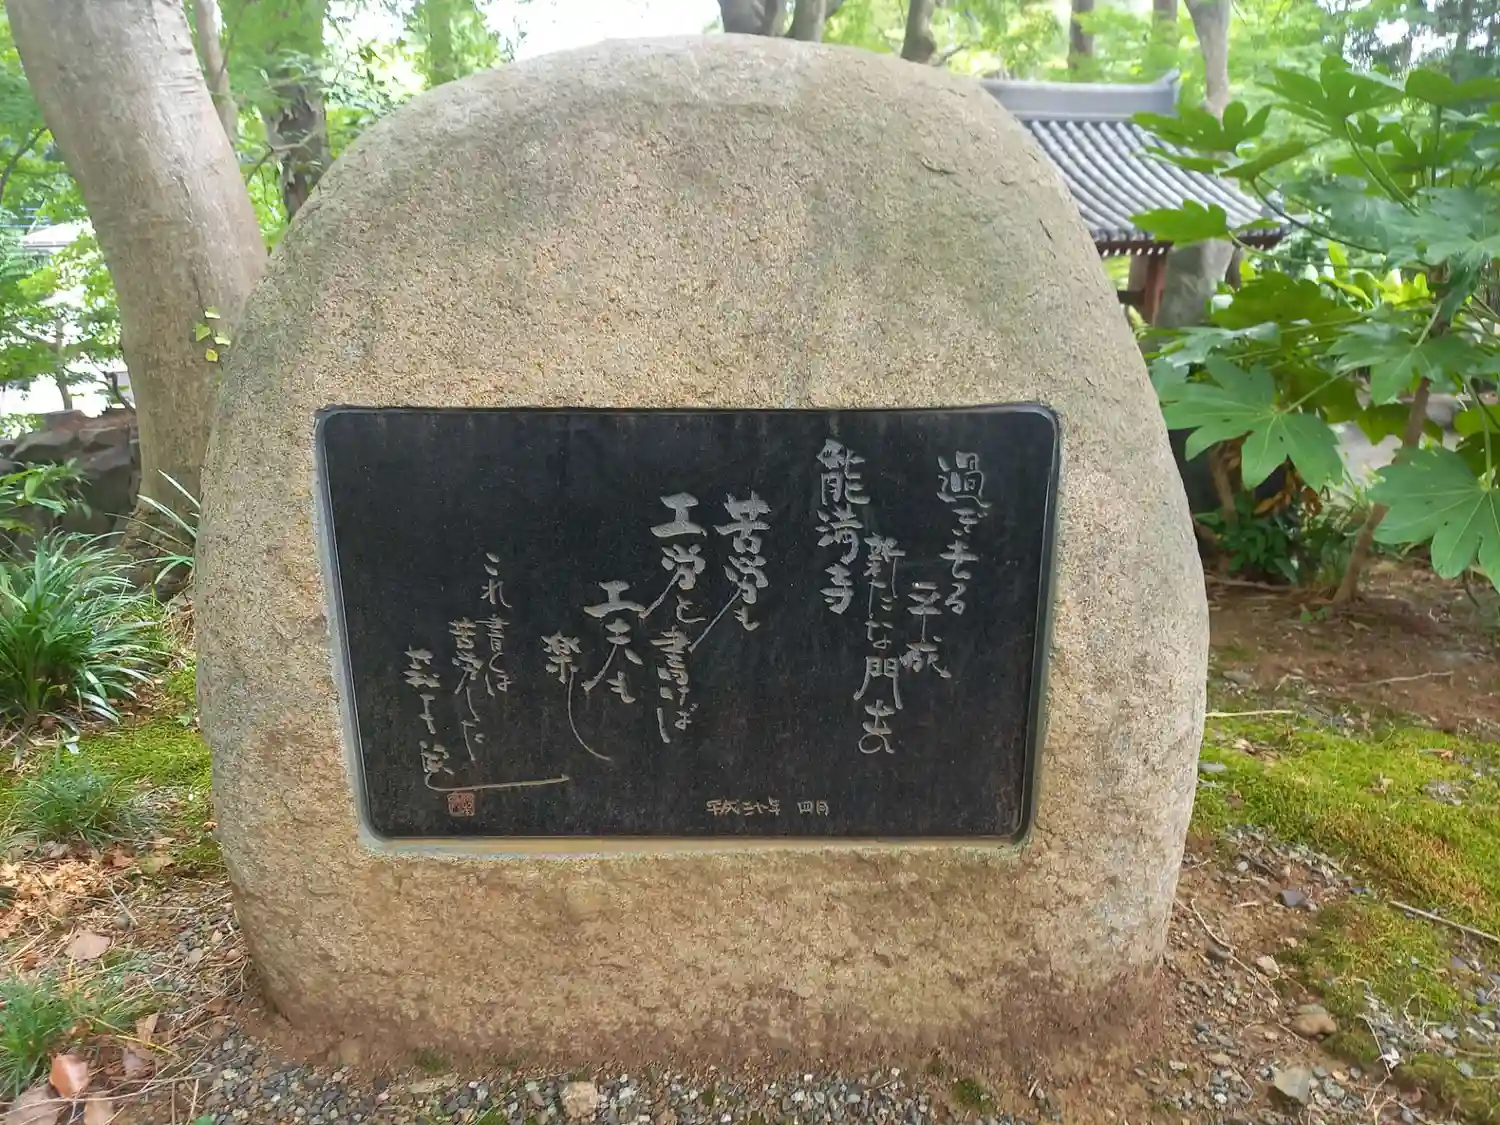 過ぎ去る
平成
新たな門出の
能満寺
苦労も
工労と書けば
工夫も
楽し
これ
書くは
苦労した
平成三十年 四月